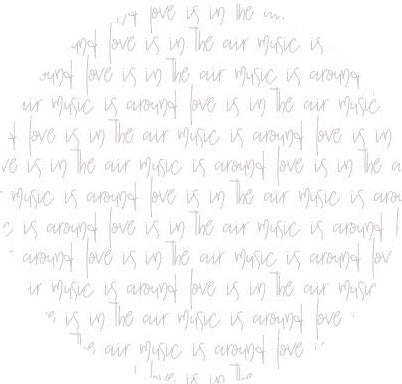 love is in the
und love is in the air music is
ound love is in the air music is around
air music is around love is in the air music
love is in the air music is around love is in
ve is in the air music is around love is in the a
music is around love is in the air music is arou
is around love is in the air music is around l
around love is in the air music is around lov
ir music is around love is in the air music
is in the air music is around love
the air music is around love
love is in the